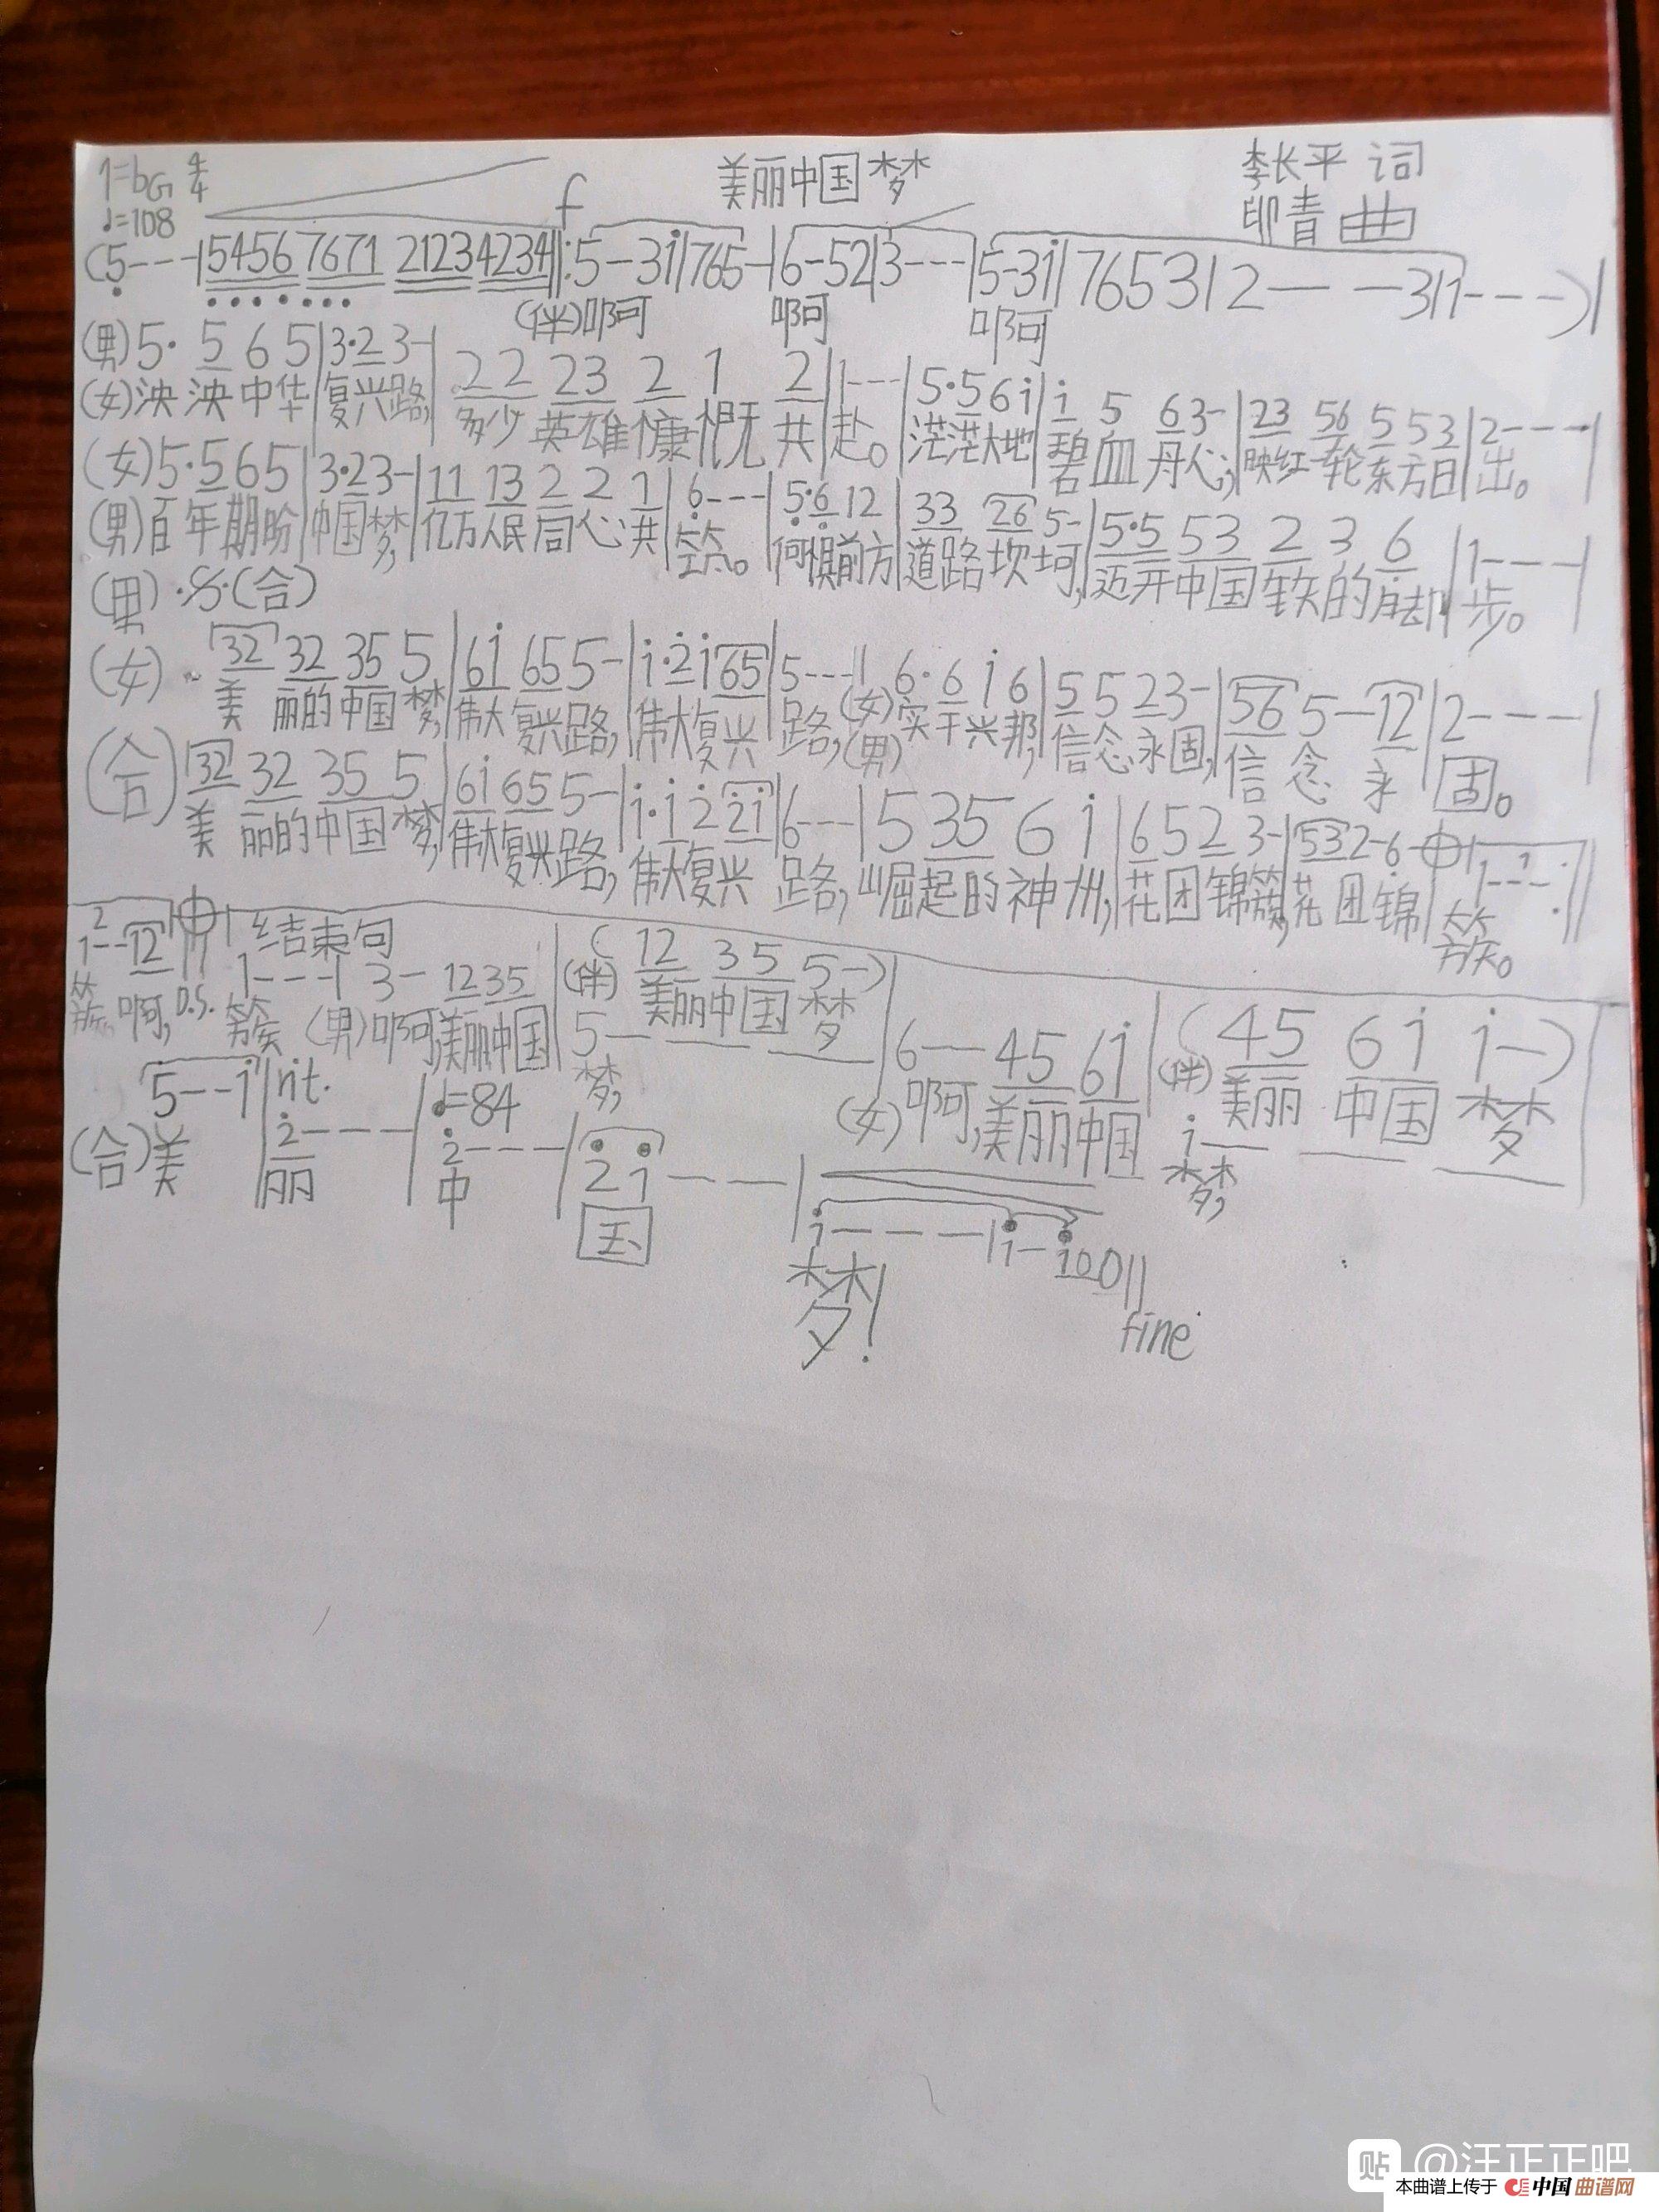 1=bG 4/4 美丽中国梦 李长平 词
♩=108 f 印青 曲
(5---|5456 7671 2123 4234‖:5-3i|765-|6-52|3---|5-3i|7653|2--3|1---)|
(伴)啊 啊 啊
(男)5·5 6 5|3·2 3-|22 23 2 1 2|1---|5·5 6 i|i 5 6 3-|23 56 5 5 3|2---|
(女)泱泱中华|复兴路,|多少英雄慷慨共|赴。|茫茫大地|碧血丹心;|映红一轮东方日|出。|
(女)5·5 6 5|3·2 3-|11 13 2 2 1|6---|5·6 1 2|33 26 5-|5·5 53 2 3 6|1---|
(男)百年期盼|中国梦,|亿万人民同心共|筑。|何惧前方|道路坎坷,|迈开中国铁的脚|步。|
(男)·𝄋·(合)
(女) 32 32 35 5|6i 65 5-|i·2 i 65|5---|6·6 i 6|5 5 2 3-|56 5-12|2---|
美 丽的中国梦,|伟大复兴路,|伟大复兴|路,|(女)(男)实干兴邦,|信念永固,|信念永|固。
(合)32 32 35 5|6i 65 5-|i·i 2 2i|6---|5 35 6 i|6 5 2 3-|53 2-6|1---:‖
美 丽的中国梦,|伟大复兴路,|伟大复兴|路,|崛起的神州,|花团锦簇,|花团锦|簇。
1--12‖ 结束句 1---|3-12 35|(12 35 5-)|
簇 啊, D.S. 簇 (男)啊,美丽中国 (伴)美丽中国梦
5-- 6--45 6i|(45 6i i-)
梦, (女)啊,美丽中国 (伴)美丽中国梦
i-
梦,
5--i|rit. 2---|♩=84 2---|2i--|i---|i-i00‖
(合)美 丽 中 国 梦!
fine
贴 @汪正正吧
本曲谱上传于 中国曲谱网